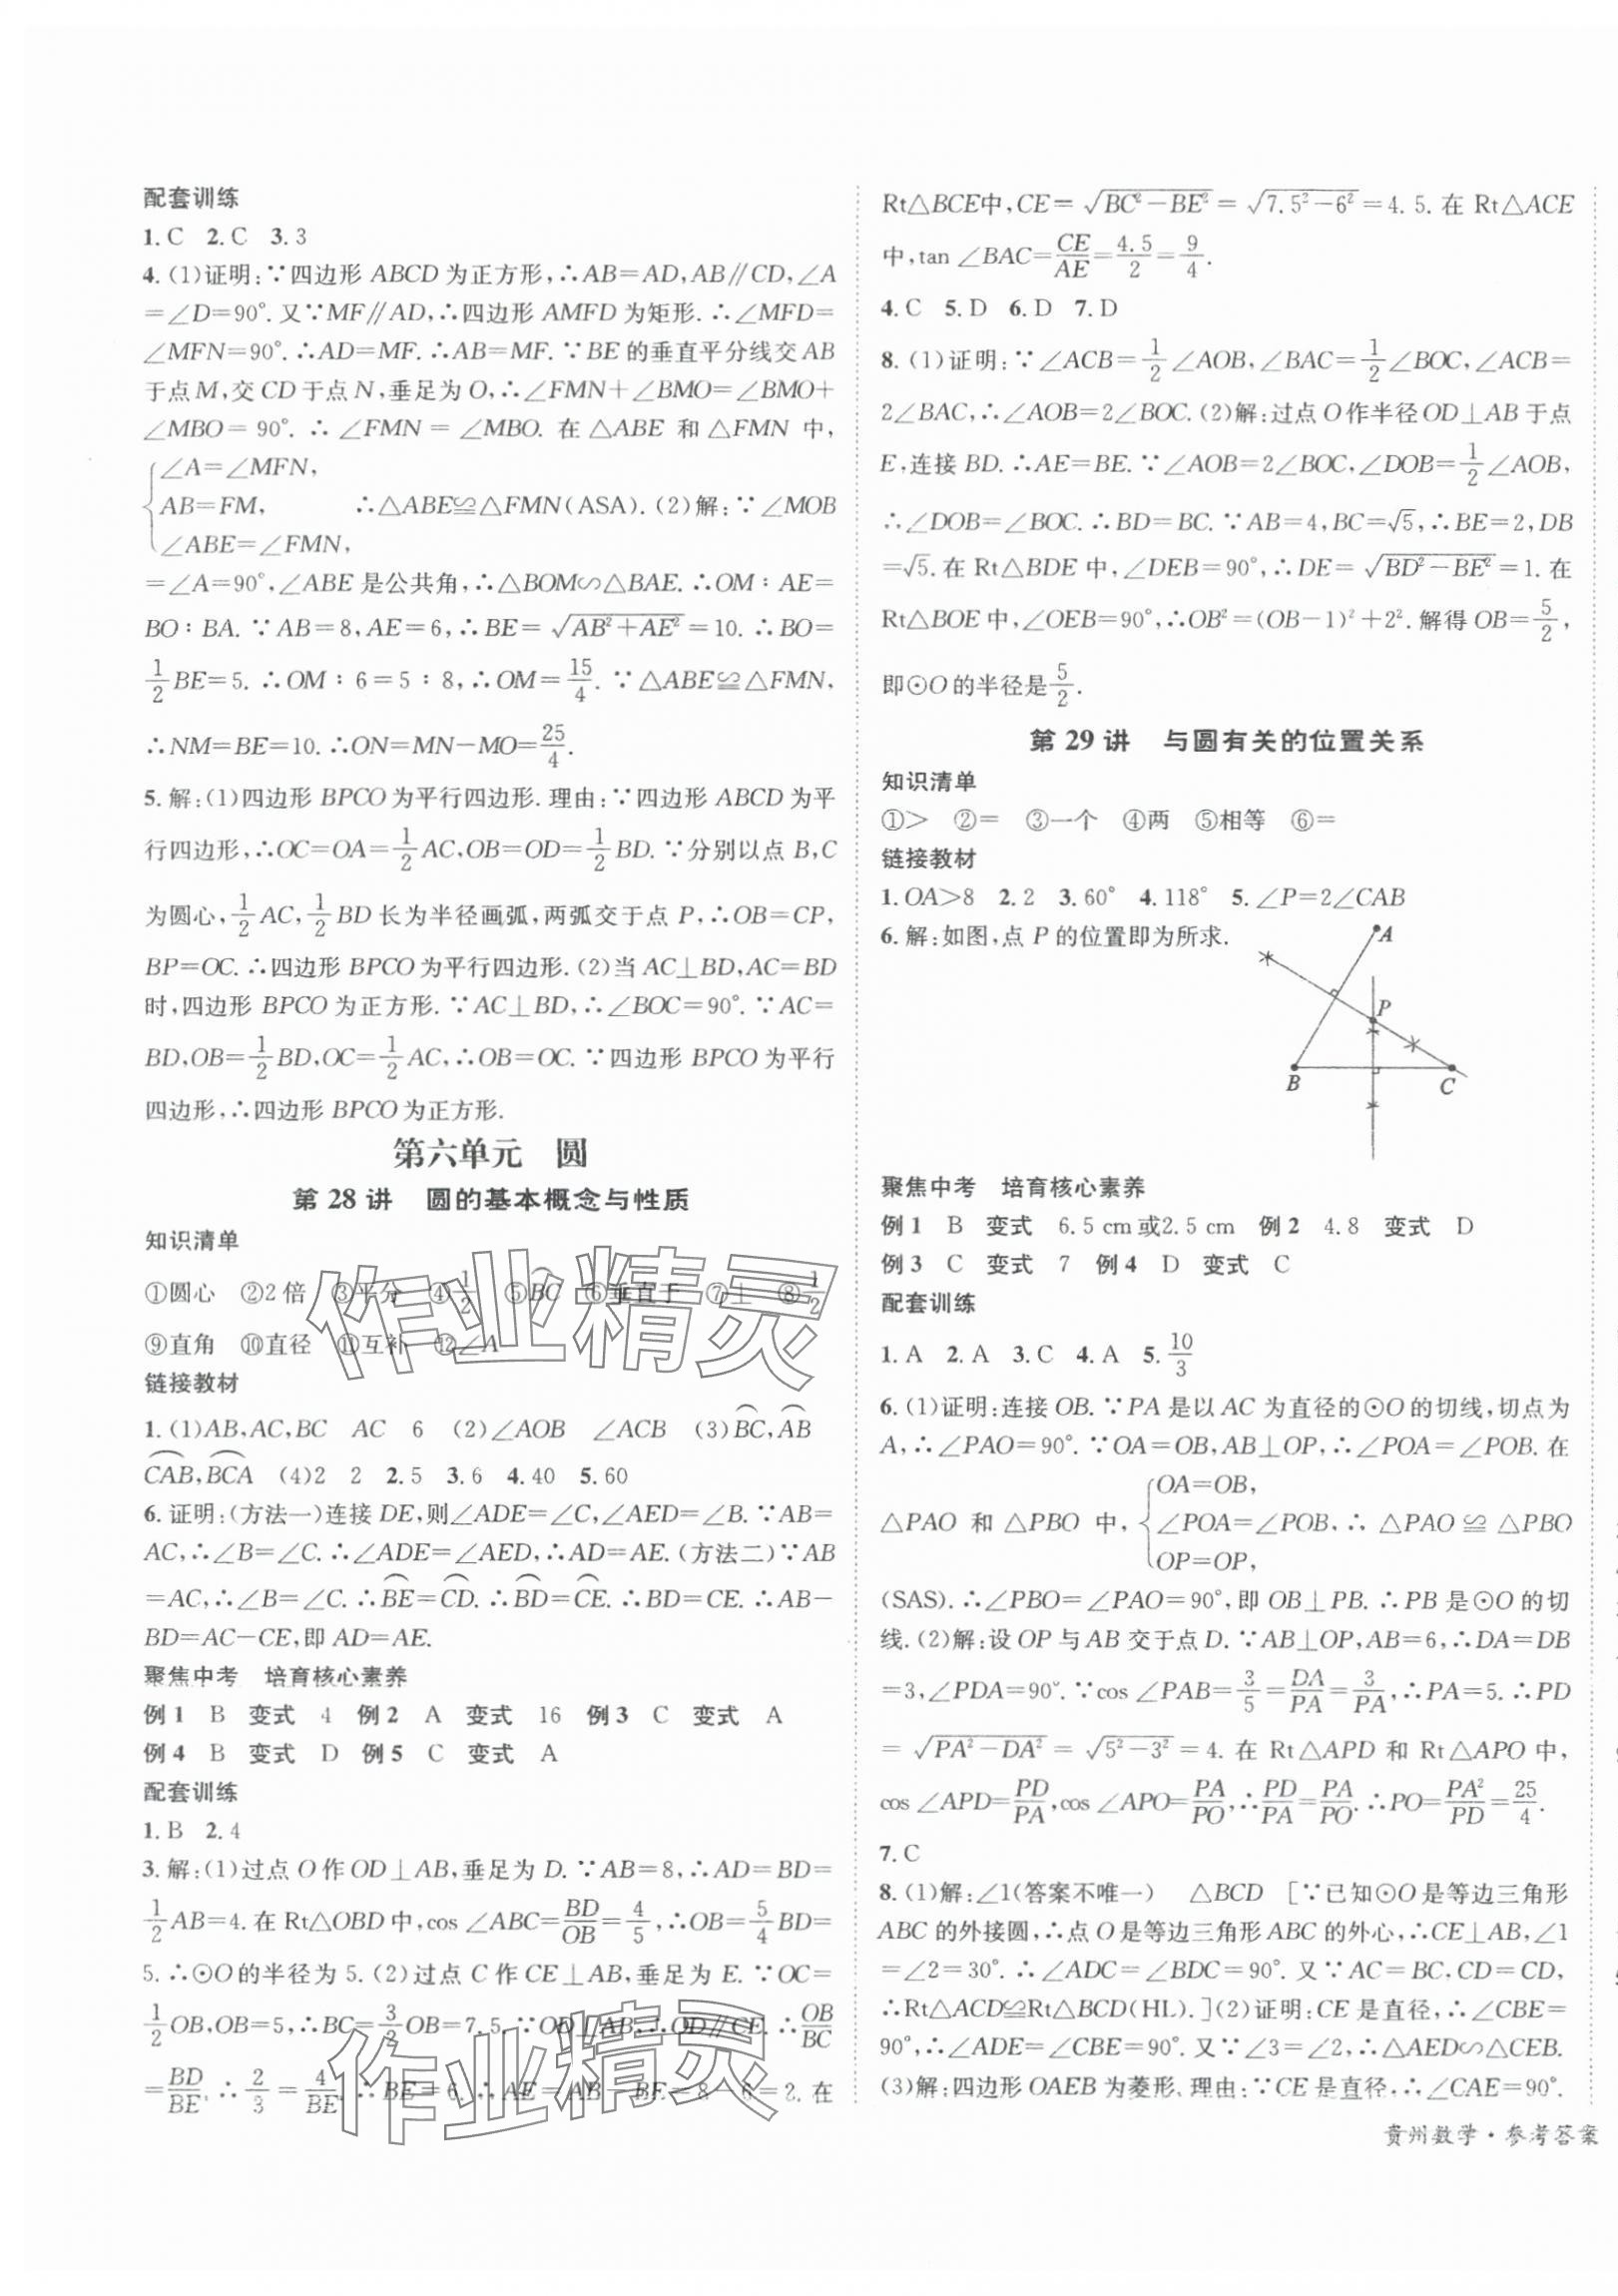 配套训练
1.C 2.C 3.3
4.(1)证明:∵四边形 ABCD 为正方形,∴AB=AD,AB∥CD,∠A
=∠D=90°.又∵MF∥AD,∴四边形 AMFD 为矩形.∴∠MFD=
∠MFN=90°.∴AD=MF.∴AB=MF.∵BE的垂直平分线交 AB
于点M,交 CD 于点 N,垂足为O,∴∠FMN+∠BMO=∠BMO+
∠MBO=90°.∴∠FMN=∠MBO. 在△ABE 和△FMN 中,
{∠A=∠MFN,
AB=FM, ∴△ABE≌△FMN(ASA).(2)解:∵∠MOB
∠ABE=∠FMN,
=∠A=90°,∠ABE是公共角,∴△BOM∽△BAE.∴OM∶AE=
BO∶BA.∵AB=8,AE=6,∴BE=√(AB²+AE²)=10.∴BO=
1/2 BE=5.∴OM∶6=5∶8,∴OM=15/4.∵△ABE≌△FMN,
∴NM=BE=10.∴ON=MN-MO=25/4.
5.解:(1)四边形 BPCO为平行四边形.理由:∵四边形 ABCD 为平
行四边形,∴OC=OA=1/2 AC,OB=OD=1/2 BD.∵分别以点 B,C
为圆心,1/2 AC,1/2 BD 长为半径画弧,两弧交于点 P,∴OB=CP,
BP=OC.∴四边形 BPCO为平行四边形.(2)当 AC⊥BD,AC=BD
时,四边形 BPCO 为正方形.∵AC⊥BD,∴∠BOC=90°.∵AC=
BD,OB=1/2 BD,OC=1/2 AC,∴OB=OC.∵四边形 BPCO 为平行
四边形,∴四边形 BPCO为正方形.
第六单元 圆
第 28 讲 圆的基本概念与性质
知识清单
①圆心 ②2倍 ③平分 ④1/2 ⑤B͡C ⑥垂直于 ⑦⊥ ⑧1/2
⑨直角 ⑩直径 ⑪互补 ⑫∠A
链接教材
1.(1)AB,AC,BC AC 6 (2)∠AOB ∠ACB (3)B͡C,A͡B
C͡AB,B͡CA (4)2 2 2.5 3.6 4.40 5.60
6.证明:(方法一)连接 DE,则∠ADE=∠C,∠AED=∠B.∵AB=
AC,∴∠B=∠C.∴∠ADE=∠AED,∴AD=AE.(方法二)∵AB
=AC,∴∠B=∠C.∴B͡E=C͡D.∴B͡D=C͡E.∴BD=CE.∴AB-
BD=AC-CE,即 AD=AE.
聚焦中考 培育核心素养
例1 B 变式 4 例2 A 变式 16 例3 C 变式 A
例4 B 变式 D 例5 C 变式 A
配套训练
1.B 2.4
3.解:(1)过点O作OD⊥AB,垂足为 D.∵AB=8,∴AD=BD=
1/2 AB=4.在Rt△OBD中,cos∠ABC=BD/OB=4/5,∴OB=5/4 BD=
5.∴⊙O的半径为5.(2)过点 C 作CE⊥AB,垂足为 E.∵OC=
1/2 OB,OB=5,∴BC=3/2 OB=7.5.∵OD⊥AB,∴OD∥CE.∴OB/BC
=BD/BE,∴2/3=4/BE.∴BE=6.∴AE=AB-BE=8-6=2.在
Rt△BCE中,CE=√(BC²-BE²)=√(7.5²-6²)=4.5.在 Rt△ACE
中,tan∠BAC=CE/AE=4.5/2=9/4.
4.C 5.D 6.D 7.D
8.(1)证明:∵∠ACB=1/2∠AOB,∠BAC=1/2∠BOC,∠ACB=
2∠BAC,∴∠AOB=2∠BOC.(2)解:过点O作半径OD⊥AB于点
E,连接 BD.∴AE=BE.∵∠AOB=2∠BOC,∠DOB=1/2∠AOB,
∴∠DOB=∠BOC.∴BD=BC.∵AB=4,BC=√5,∴BE=2,DB
=√5.在 Rt△BDE 中,∠DEB=90°,∴DE=√(BD²-BE²)=1.在
Rt△BOE中,∠OEB=90°,∴OB²=(OB-1)²+2².解得OB=5/2,
即⊙O的半径是5/2.
第 29 讲 与圆有关的位置关系
知识清单
①> ②= ③一个 ④两 ⑤相等 ⑥=
链接教材
1.OA>8 2.2 3.60° 4.118° 5.∠P=2∠CAB
6.解:如图,点 P 的位置即为所求.
A
P
B
C
聚焦中考 培育核心素养
例1 B 变式 6.5 cm或2.5 cm 例2 4.8 变式 D
例3 C 变式 7 例4 D 变式 C
配套训练
1.A 2.A 3.C 4.A 5.10/3
6.(1)证明:连接 OB.∵PA 是以 AC 为直径的⊙O的切线,切点为
A,∴∠PAO=90°.∵OA=OB,AB⊥OP,∴∠POA=∠POB.在
{OA=OB,
△PAO 和 △PBO 中, ∠POA=∠POB,∴△PAO≌△PBO
OP=OP,
(SAS).∴∠PBO=∠PAO=90°,即 OB⊥PB.∴PB 是⊙O的切
线.(2)解:设 OP 与 AB 交于点 D.∵AB⊥OP,AB=6,∴DA=DB
=3,∠PDA=90°.∵cos∠PAB=3/5=DA/PA=3/PA,∴PA=5.∴PD
=√(PA²-DA²)=√(5²-3²)=4.在 Rt△APD 和 Rt△APO 中,
cos∠APD=PD/PA,cos∠APO=PA/PO,∴PD/PA=PA/PO.∴PO=PA²/PD=25/4.
7.C
8.(1)解:∠1(答案不唯一) △BCD [∵已知⊙O是等边三角形
ABC 的外接圆,∴点 O是等边三角形 ABC 的外心,∴CE⊥AB,∠1
=∠2=30°.∴∠ADC=∠BDC=90°.又∵AC=BC,CD=CD,
∴Rt△ACD≌Rt△BCD(HL).](2)证明:CE是直径,∴∠CBE=
90°,∴∠ADE=∠CBE=90°.又∵∠3=∠2,∴△AED∽△CEB.
(3)解:四边形 OAEB 为菱形,理由:∵CE是直径,∴∠CAE=90°.
贵州数学·参考答案
作业精灵
作业精灵